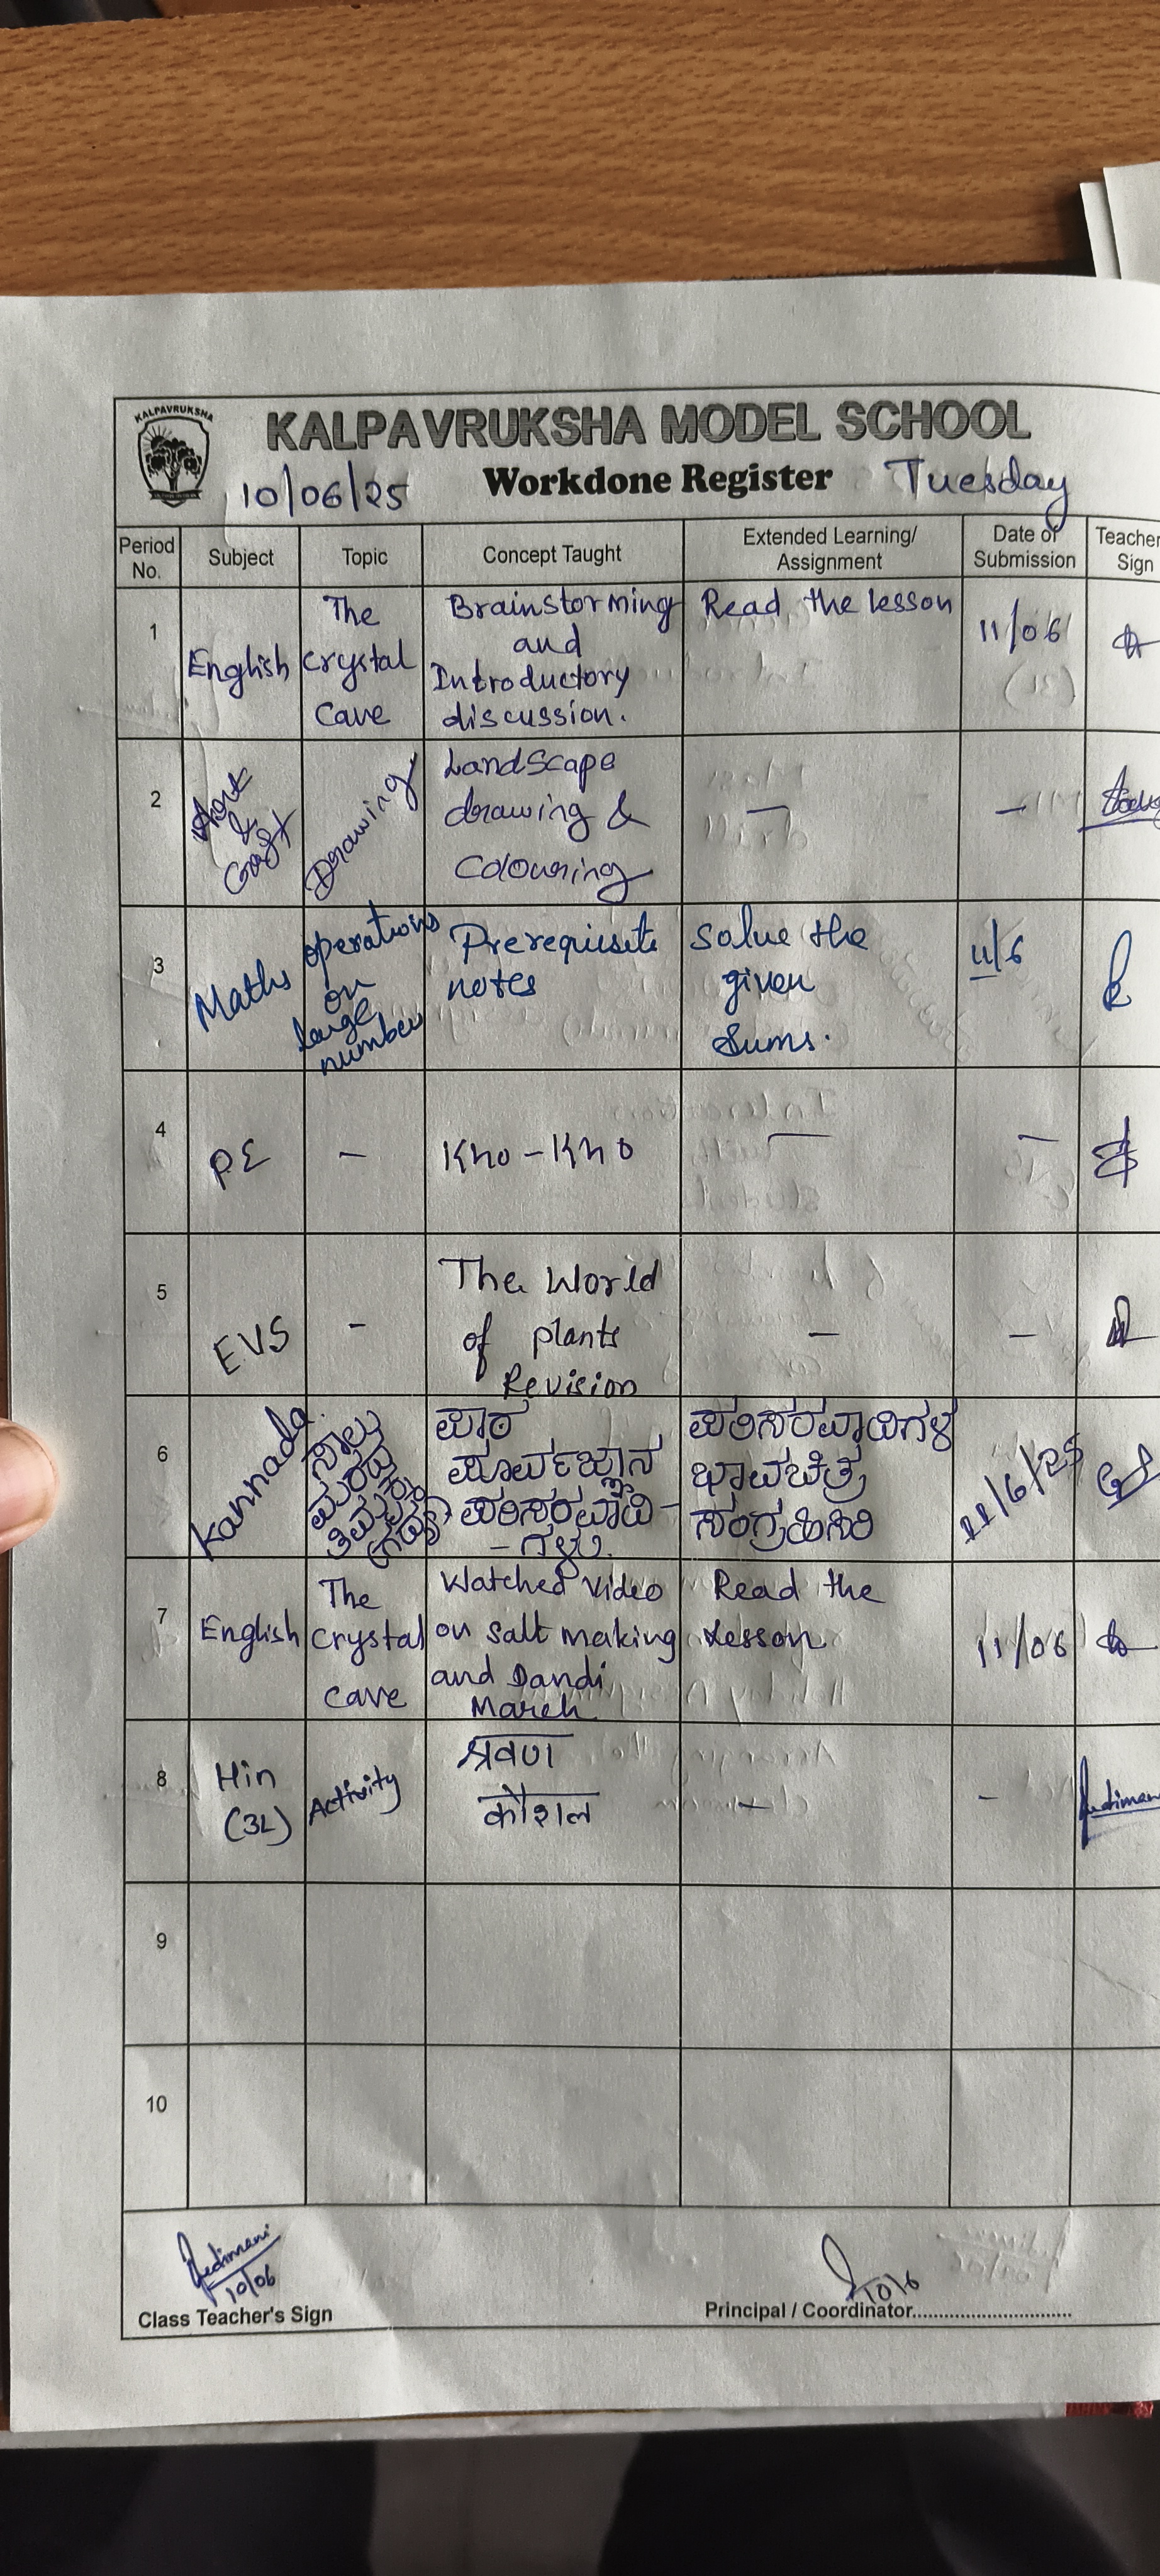 KALPAVRUKSHA
KALPAVRUKSHA MODEL SCHOOL
10/06/25 Workdone Register Tuesday
Period No. Subject Topic Concept Taught Extended Learning/ Assignment Date of Submission Teacher Sign
1 English The Crystal Cave Brainstorming and Introductory discussion. Read the lesson 11/06
2 & Craft Drawing Landscape drawing & Colouring — —
3 Maths operations on large numbers Prerequisite notes Solve the given Sums. 11/6
4 PE – Kho-Kho — —
5 EVS - The World of plants Revision — —
6 Kannada ಸಾಲು ಮರದ ತಿಮ್ಮಕ್ಕ (ಗದ್ಯ) ಪಾಠ ಪೂರ್ವಜ್ಞಾನ ಪರಿಸರವಾದಿ--ಗಳು. ಪರಿಸರವಾದಿಗಳ ಭಾವಚಿತ್ರ ಸಂಗ್ರಹಿಸಿರಿ 11/6/25
7 English The Crystal Cave Watched Video on Salt making and Dandi March Read the Lesson 11/06
8 Hin (3L) Activity श्रवण कौशल — -
9
10
10/06 10/6
Class Teacher's Sign Principal / Coordinator..............................